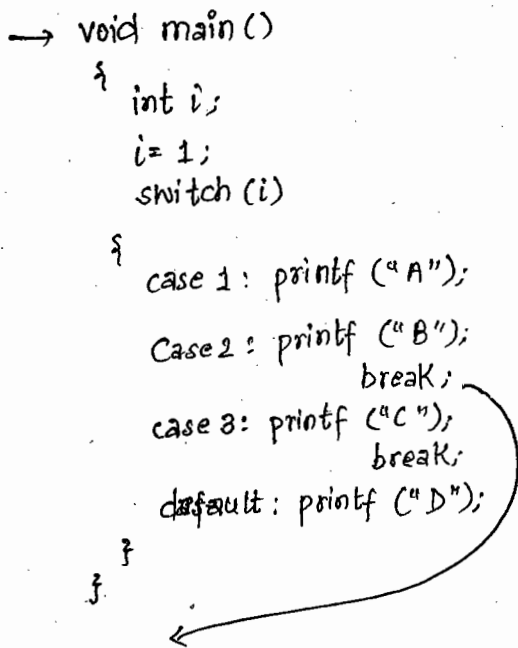 → void main()
{
int i;
i= 1;
switch (i)
{
case 1: printf ("A");
Case2: printf ("B");
break;
case 3: printf ("C");
break;
default: printf ("D");
}
}